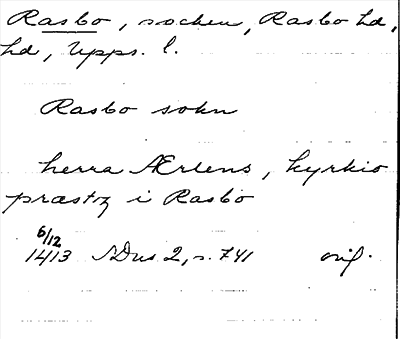 Rasbo, socken, Rasbo hd,
hd, Upps. l.
Rasbo sokn
herra Ærlens, kyrkio
præstz i Rasbo
6/12
1413 SDns 2, s. 741 orig.